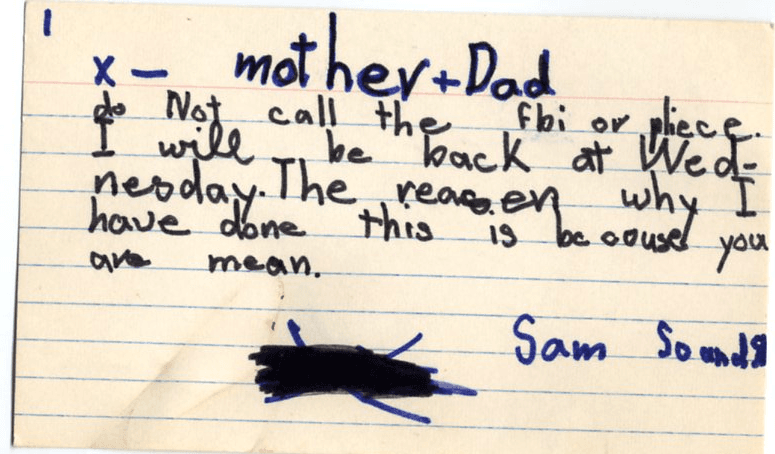 1
x – mother + Dad
do Not call the fbi or pliece.
I will be back at Wed-
nesday. The reasen why I
have done this is becouse you
are mean.
Sam Sounds